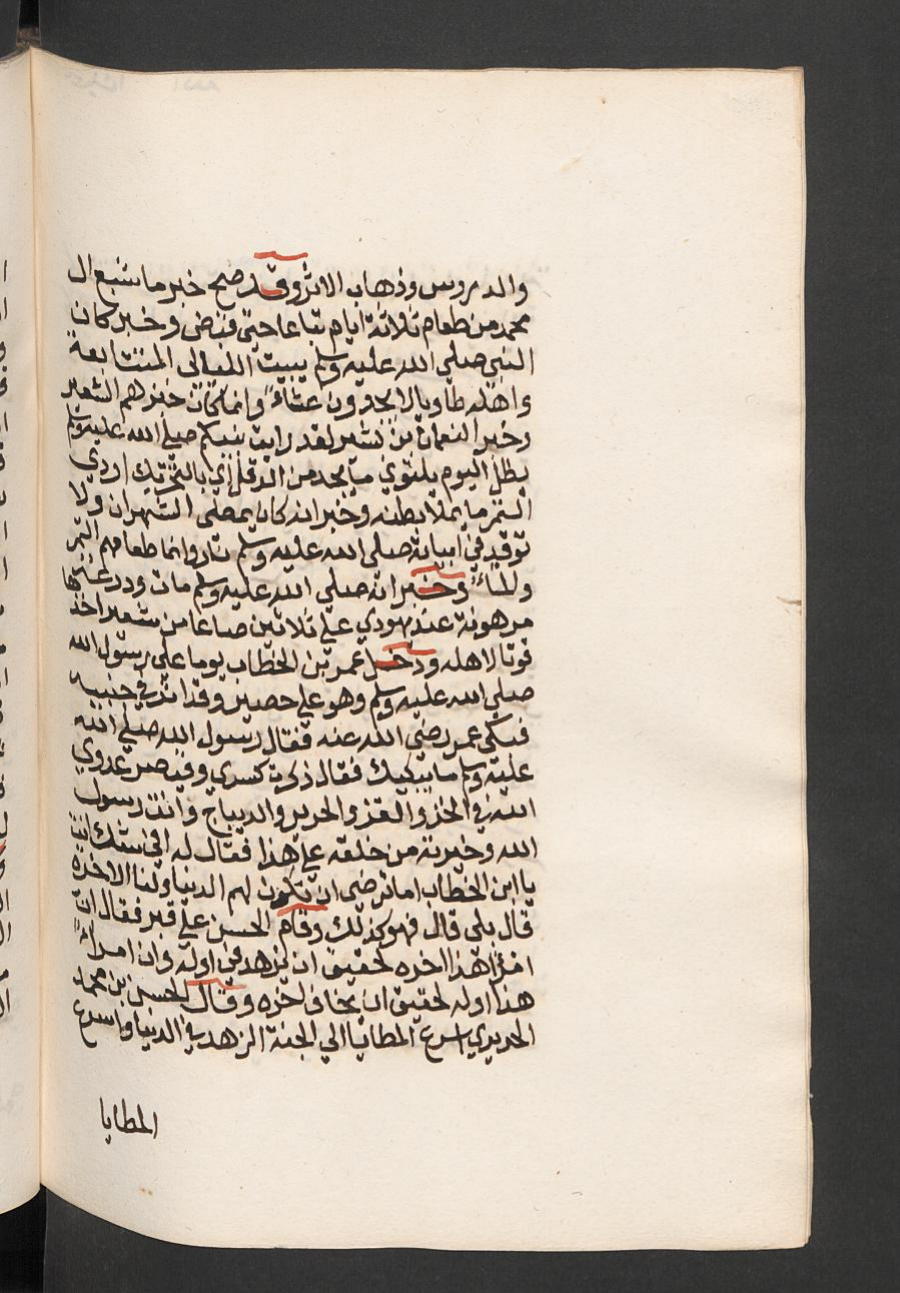 والدروس وذهاب الاثر وقد صح خبر ما شبع ال
محمد من طعام ثلاثة ايام تباعا حتى قبض وخبر كان
النبي صلي الله عليه وسلم يبيت الليالي المتتابعة
واهله طاويا لا يجدون عشاء وانما كان خبزهم الشعير
وخبر النعمان بن بشير لقد رايت نبيكم صلي الله عليه وسلم
يظل اليوم يلتوي ما يجد من الدقل اي بالتحريك اردي
التمر ما يملا بطنه وخبر انه كان يمضي الشهران ولا
توقد في ابياته صلي الله عليه وسلم نار وانما طعامهم التمر
والماء وخبر انه صلي الله عليه وسلم مات ودرعه
مرهونة عند يهودي علي ثلاثين صاعا من شعير اخذ
قوتا لاهله ودخل عمر بن الخطاب يوما علي رسول الله
صلي الله عليه وسلم وهو علي حصير وقد اثر في جنبيه
فبكي عمر رضي الله عنه فقال رسول الله صلي الله
عليه وسلم ما يبكيك فقال ذكرت كسري وقيصر عدوي
الله في الخز والقز والحرير والديباج وانت رسول
الله وخيرته من خلقه علي هذا فقال له افي شك انت
يا ابن الخطاب اما ترضي ان تكون لهم الدنيا ولنا الاخره
قال بلي قال فهو كذلك وقام الحسن علي قبر فقال ان
امرا هذا اخره لحقيق ان يزهد في اوله وان امرا
هذا اوله لحقيق ان يخاف اخره وقال الحسن بن محمد
الحريري اسرع المطايا الي الجنة الزهد في الدنيا واسرع
المطايا